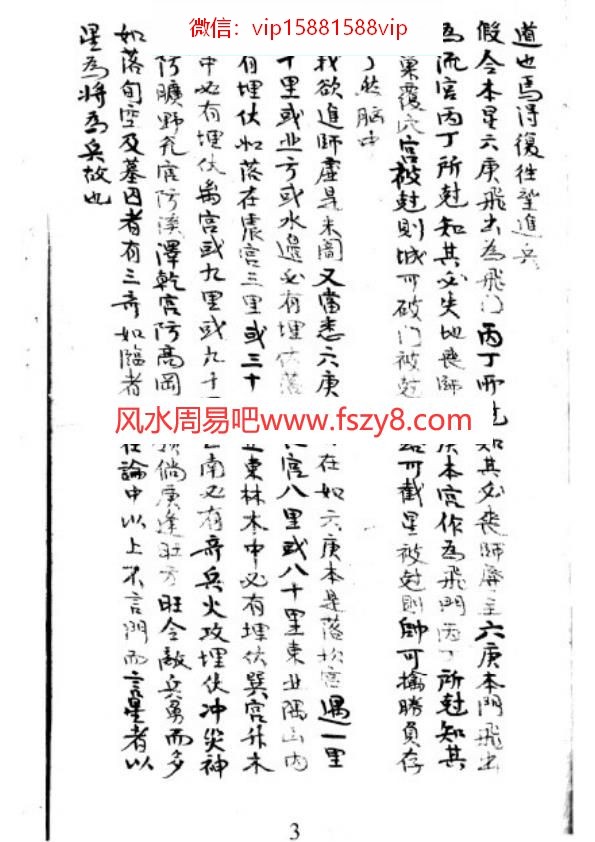 微信：vip15881588vip
道也焉得復往望進兵
假令本星六庚飛出為飛门丙丁所尅知其必喪師辱主六庚本門飛出
為流宫丙丁所尅知其必失地喪師庚本宫作為飛門丙丁所尅知其
巢覆穴宫被尅則城可破门被尅可截星被尅則帥可擒勝負存
腦中
我欲進師虛是未閣又當悉六庚在如六庚本是落坎宫遇一里
十里或北方或水邊必有埋伏落宫八里或八十里東北隅山内
有埋伏如落在震宫三里或三十正東林木中必有埋伏巽宫升木
中必有埋伏离宫或九里或九十南必有奇兵火攻埋伏冲災神
防曠野兊宫防溪澤乾宫防高岡倘庚逢旺方旺令敵兵勇而多
如落旬空及墓囚者有三奇如臨者在論中以上不言門而言星者以
星為將為兵故也
风水周易吧www.fszy8.com
3